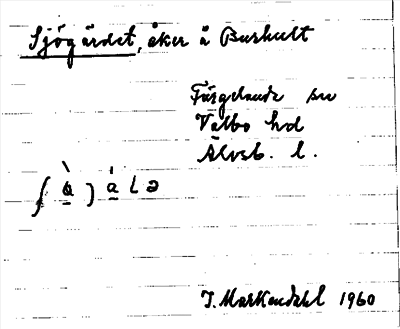 Sjögärdet, åker å Buskult
Färgelanda sn
Valbo hd
Älvsb. l.
ʃ ò̱ ȷ á̱ l ə
J. Markendahl 1960